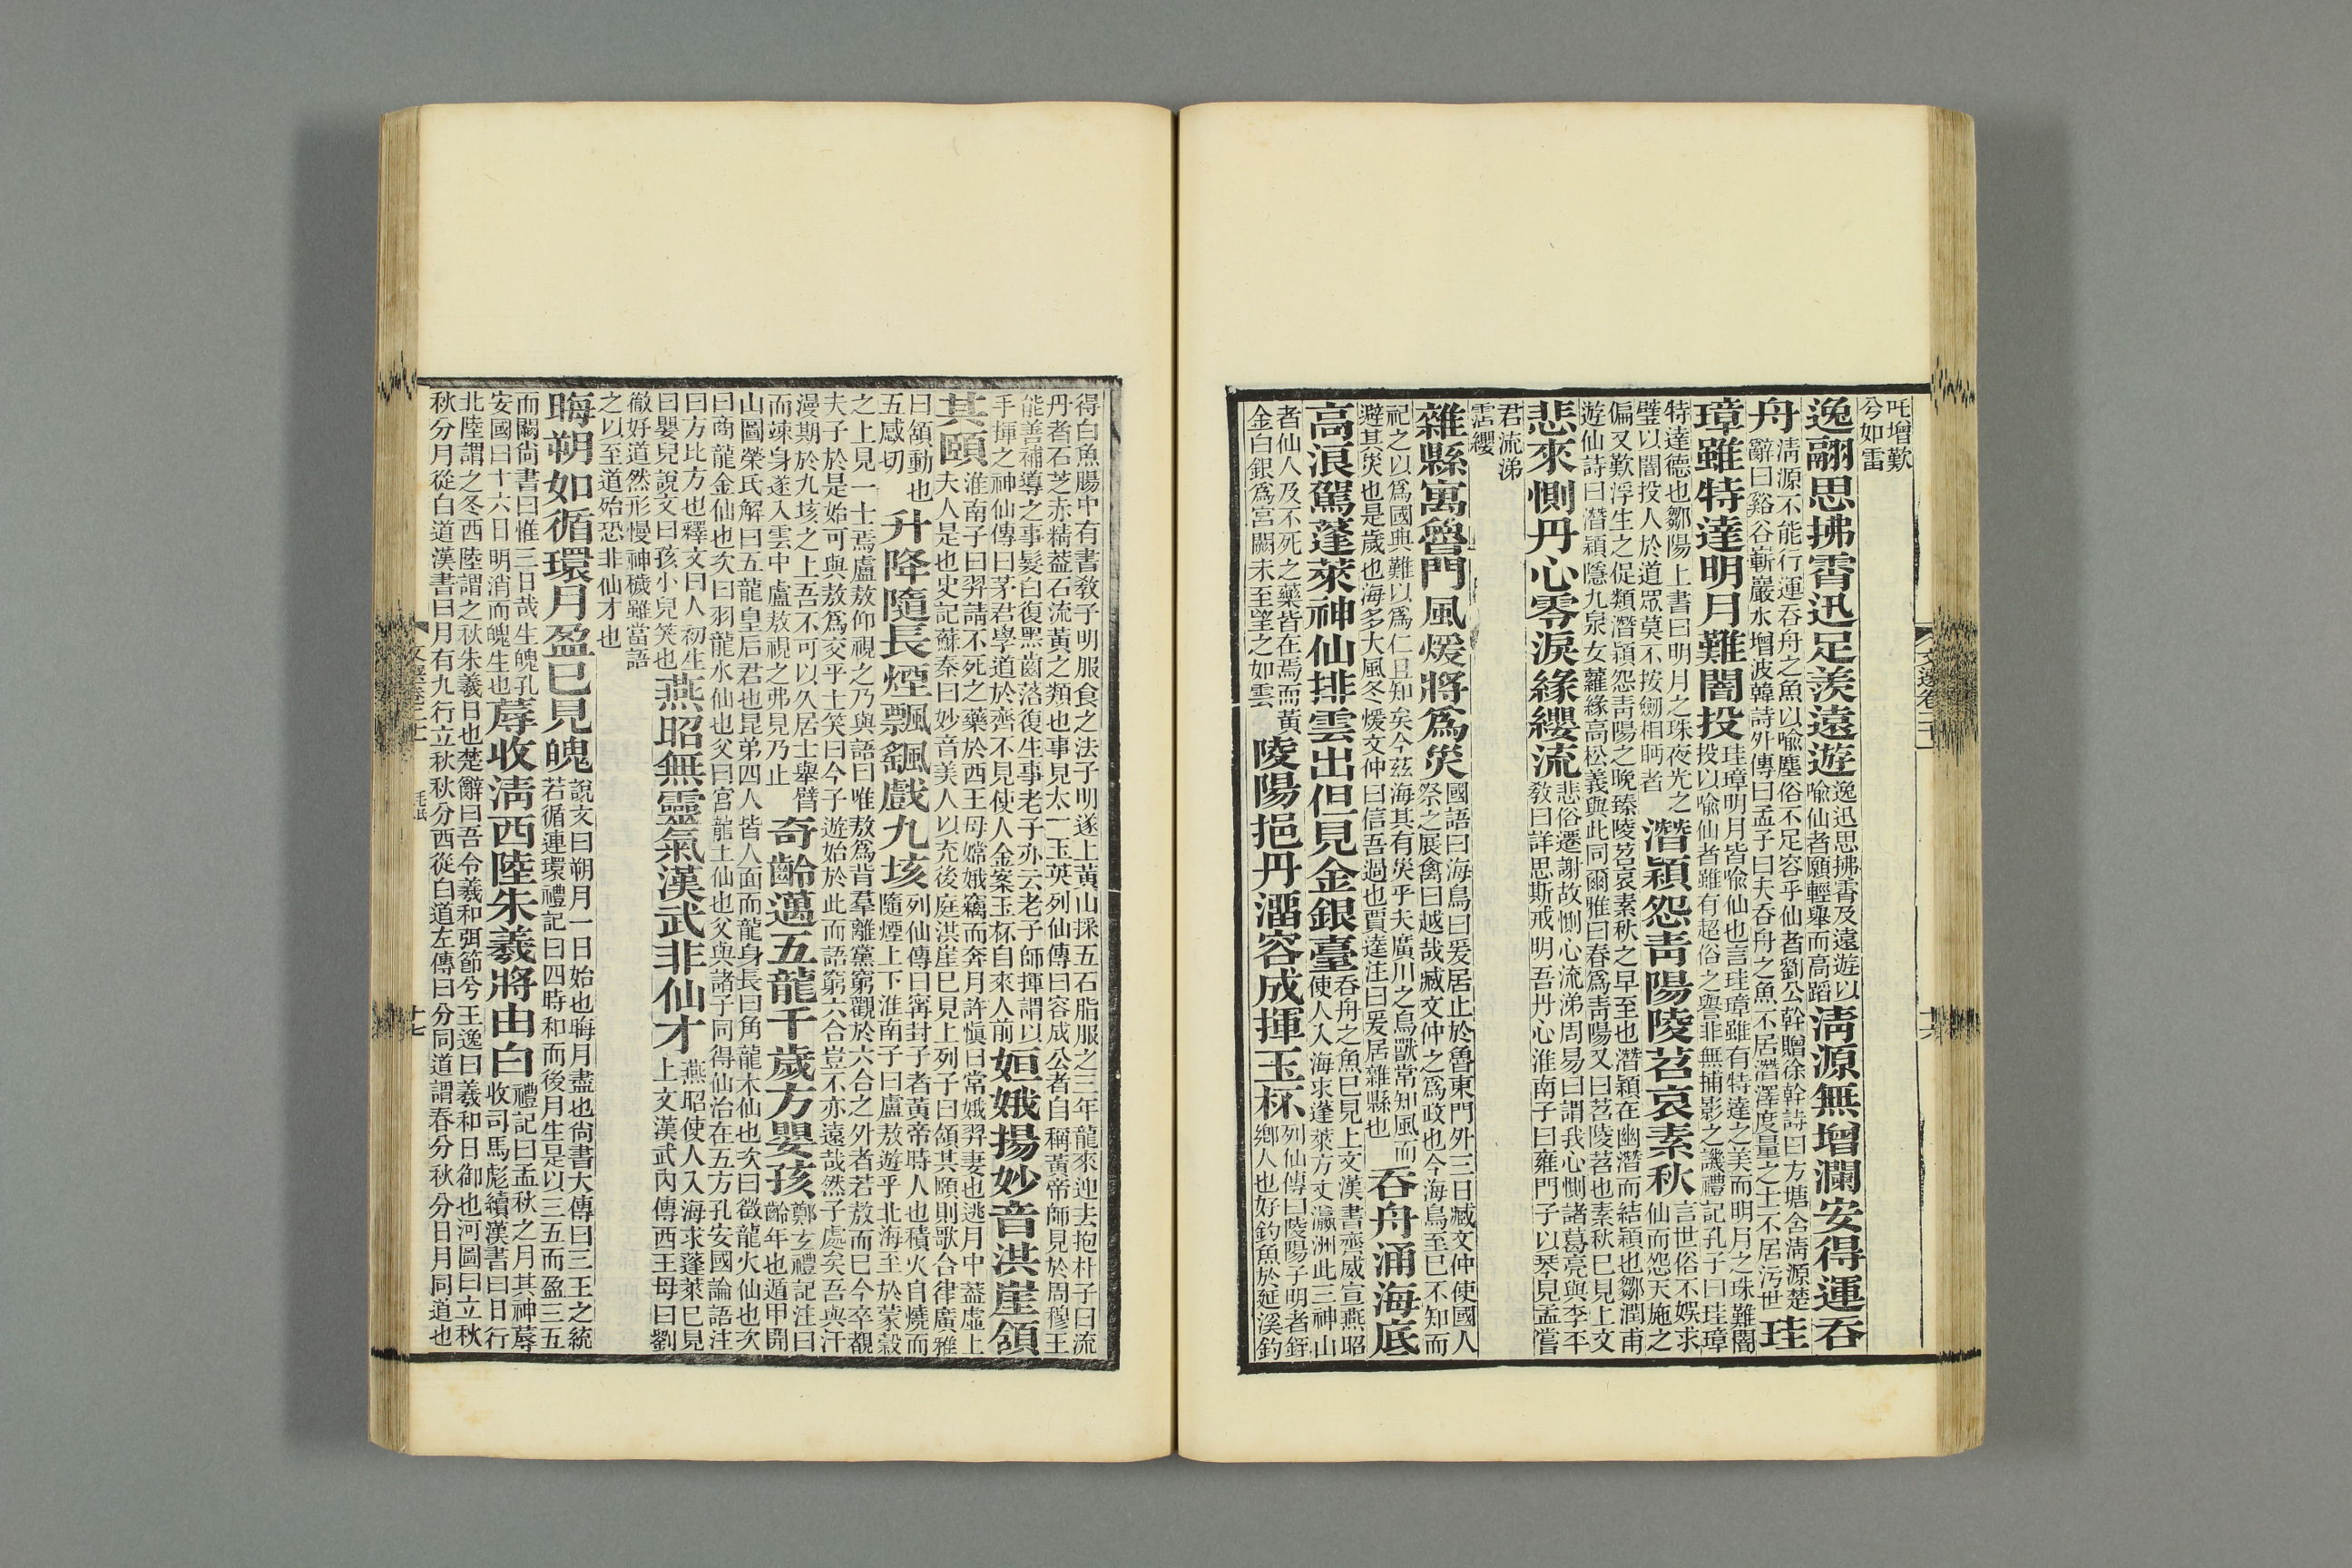 吒增歎
兮如雷
逸翮思拂霄迅足羨遠遊
逸迅思拂霄及遠遊以
喻仙者願輕舉而高蹈
淸源無增瀾安得運吞
舟
淸源不能行運吞舟之魚以喻塵俗不足容乎仙者劉公幹贈徐幹詩曰方塘含淸源楚
辭曰谿谷嶄巖水增波韓詩外傳曰孟子曰夫吞舟之魚不居潛澤度量之士不居污世
珪
璋雖特達明月難闇投
珪璋明月皆喻仙也言珪璋雖有特達之美而明月之珠難闇
投以喻仙者雖有超俗之譽非無捕影之譏禮記孔子曰珪璋
特達德也鄒陽上書曰明月之珠夜光之
璧以闇投人於道眾莫不按劒相眄者
潛穎怨靑陽陵苕哀素秋
言世俗不娛求
仙而怨天施之
偏又歎浮生之促類潛穎怨靑陽之晚臻陵苕哀素秋之早至也潛穎在幽潛而結穎也鄒潤甫
遊仙詩曰潛穎隱九泉女蘿緣高松義與此同爾雅曰春爲靑陽又曰苕陵苕也素秋已見上文
悲來惻丹心零淚緣纓流
悲俗遷謝故惻心流涕周易曰謂我心惻諸葛亮與李平
敎曰詳思斯戒明吾丹心淮南子曰雍門子以琴見孟嘗
君流涕
霑纓
雜縣寓魯門風煖將爲災
國語曰海鳥曰爰居止於魯東門外三日臧文仲使國人
祭之展禽曰越哉臧文仲之爲政也今海鳥至已不知而
祀之以爲國典難以爲仁且知矣今茲海其有災乎夫廣川之鳥獸常知風而
避其災也是歲也海多大風冬煖文仲曰信吾過也賈逵注曰爰居雜縣也
吞舟涌海底
高浪駕蓬萊神仙排雲出但見金銀臺
吞舟之魚已見上文漢書齊威宣燕昭
使人入海求蓬萊方丈瀛洲此三神山
者仙人及不死之藥皆在焉而黃
金白銀爲宮闕未至望之如雲
陵陽挹丹溜容成揮玉杯
列仙傳曰陵陽子明者銍
鄉人也好釣魚於延溪釣
得白魚腸中有書敎子明服食之法子明遂上黃山採五石脂服之三年龍來迎去抱朴子曰流
丹者石芝赤精葢石流黃之類也事見太一玉英列仙傳曰容成公者自稱黃帝師見於周穆王
能善補導之事髮白復黑齒落復生事老子亦云老子師揮謂以
手揮之神仙傳曰茅君學道於齊不見使人金案玉杯自來人前
姮娥揚妙音洪崖頷
其頤
淮南子曰羿請不死之藥於西王母嫦娥竊而奔月許愼曰常娥羿妻也逃月中葢虛上
夫人是也史記蘇秦曰妙音美人以充後庭洪崖已見上列子曰頷其頤則歌合律廣雅
曰頷動也
五感切
升降隨長煙飄颻戲九垓
列仙傳曰甯封子者黃帝時人也積火自燒而
隨煙上下淮南子曰盧敖遊乎北海至於蒙穀
之上見一士焉盧敖仰視之乃與語曰唯敖爲背羣離黨窮觀於六合之外者若敖而已今卒覩
夫子於是始可與敖爲交乎士笑曰今子遊始於此而語窮六合豈不亦遠哉然子處矣吾與汗
漫期於九垓之上吾不可以久居士舉臂
而竦身遂入雲中盧敖視之弗見乃止
奇齡邁五龍千歲方嬰孩
鄭玄禮記注曰
齡年也遁甲開
山圖榮氏解曰五龍皇后君也昆弟四人皆人面而龍身長曰角龍木仙也次曰徵龍火仙也次
曰商龍金仙也次曰羽龍水仙也父曰宮龍土仙也父與諸子同得仙治在五方孔安國論語注
曰方比方也釋文曰人初生
曰嬰兒說文曰孩小兒笑也
燕昭無靈氣漢武非仙才
燕昭使人入海求蓬萊已見
上文漢武內傳西王母曰劉
徹好道然形慢神穢雖當語
之以至道殆恐非仙才也
晦朔如循環月盈已見魄
說文曰朔月一日始也晦月盡也尙書大傳曰三王之統
若循連環禮記曰四時和而後月生是以三五而盈三五
而闕尙書曰惟三日哉生魄孔
安國曰十六日明消而魄生也
蓐收淸西陸朱羲將由白
禮記曰孟秋之月其神蓐
收司馬彪續漢書曰日行
北陸謂之冬西陸謂之秋朱羲日也楚辭曰吾令羲和弭節兮王逸曰羲和日御也河圖曰立秋
秋分月從白道漢書曰月有九行立秋秋分西從白道左傳曰分同道謂春分秋分日月同道也
十七